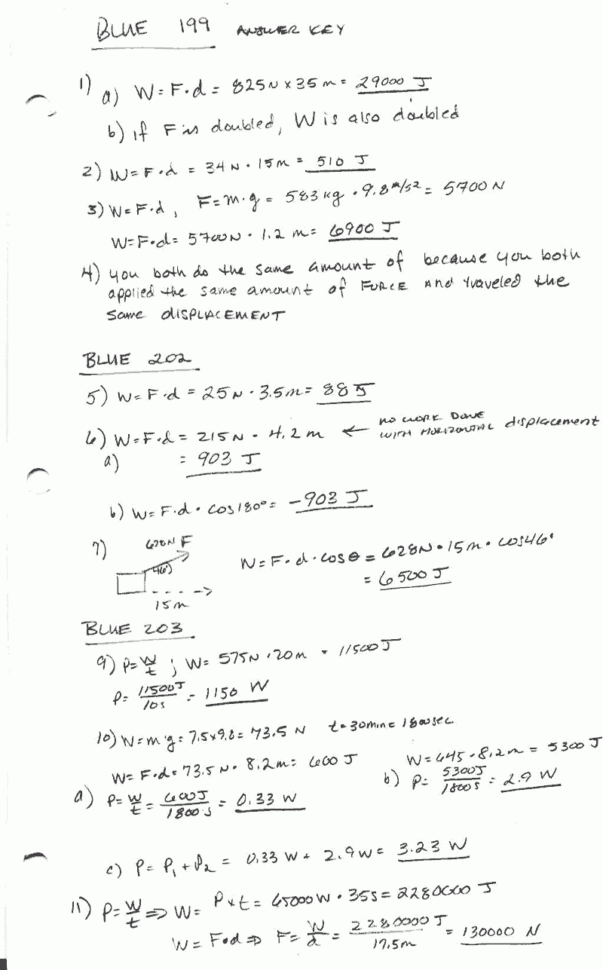 BLUE 199 ANSWER KEY
1) a) W = F·d = 825 N x 35 m = 29000 J
b) if F is doubled, W is also doubled
2) W = F·d = 34 N · 15 m = 510 J
3) W = F·d, F = m·g = 583 kg · 9.8 m/s² = 5700 N
W = F·d = 5700 N · 1.2 m = 6900 J
4) you both do the same amount of because you both
applied the same amount of FORCE AND traveled the
same DISPLACEMENT
BLUE 202
5) W = F·d = 25 N · 3.5 m = 88 J
6) W = F·d = 215 N · 4.2 m ← NO WORK DONE
WITH HORIZONTAL displacement
a) = 903 J
b) W = F·d · cos 180° = -903 J
7) 628 N F
46°
15 m
W = F·d·cos θ = 628 N · 15 m · cos 46°
= 6500 J
BLUE 203
9) P = W/t ; W = 575 N · 20 m = 11500 J
P = 11500 J/10 s = 1150 W
10) W = m·g = 7.5 x 9.8 = 73.5 N t = 30 min = 1800 sec
W = F·d = 73.5 N · 8.2 m = 600 J
a) P = W/t = 600 J/1800 s = 0.33 W
W = 645 · 8.2 m = 5300 J
b) P = 5300 J/1800 s = 2.9 W
c) P = P₁ + P₂ = 0.33 W + 2.9 W = 3.23 W
11) P = W/t ⇒ W = P x t = 65000 W · 35 s = 2280000 J
W = F·d ⇒ F = W/d = 2280000 J/17.5 m = 130000 N